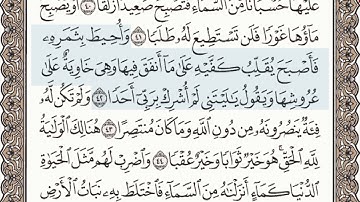 عَلَيْهَا حُسْبَانًا مِّنَ السَّمَاءِ فَتُصْبِحَ صَعِيدًا زَلَقًا ٤٠ أَوْ يُصْبِحَ
مَاؤُهَا غَوْرًا فَلَن تَسْتَطِيعَ لَهُ طَلَبًا ٤١ وَأُحِيطَ بِثَمَرِهِ
فَأَصْبَحَ يُقَلِّبُ كَفَّيْهِ عَلَىٰ مَا أَنفَقَ فِيهَا وَهِيَ خَاوِيَةٌ عَلَىٰ
عُرُوشِهَا وَيَقُولُ يَٰلَيْتَنِي لَمْ أُشْرِكْ بِرَبِّي أَحَدًا ٤٢ وَلَمْ تَكُن لَّهُ
فِئَةٌ يَنصُرُونَهُ مِن دُونِ اللَّهِ وَمَا كَانَ مُنتَصِرًا ٤٣ هُنَالِكَ الْوَلَٰيَةُ
لِلَّهِ الْحَقِّ هُوَ خَيْرٌ ثَوَابًا وَخَيْرٌ عُقْبًا ٤٤ وَاضْرِبْ لَهُم مَّثَلَ الْحَيَوٰةِ
الدُّنْيَا كَمَاءٍ أَنزَلْنَٰهُ مِنَ السَّمَاءِ فَاخْتَلَطَ بِهِ نَبَاتُ الْأَرْضِ